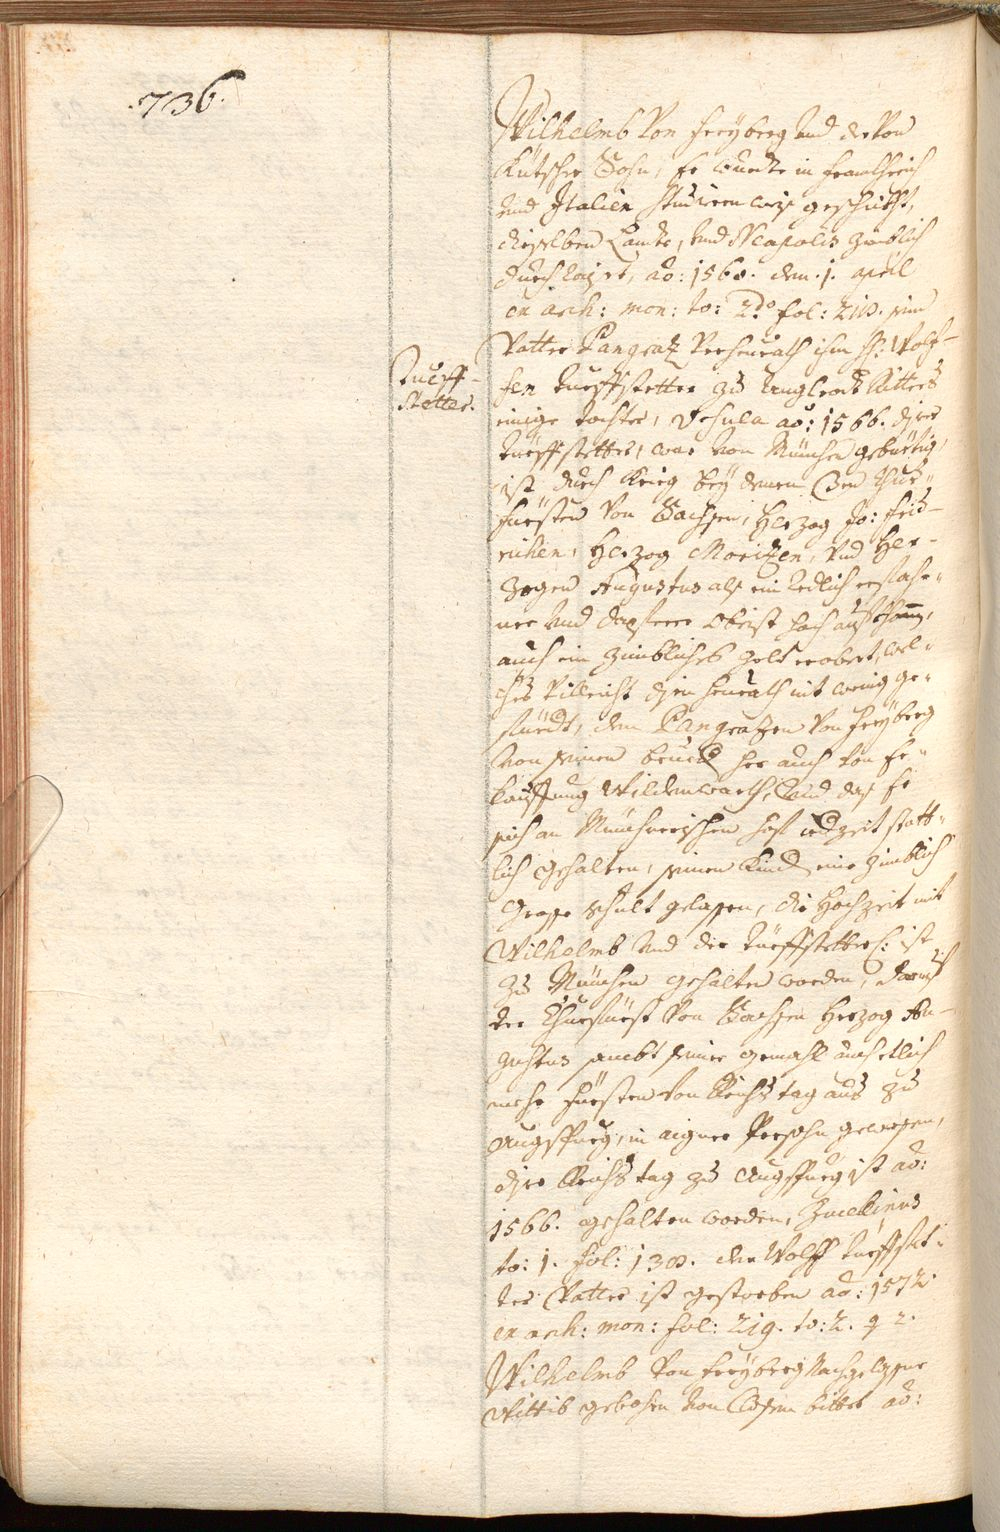 .736.
Wilhelmb Von Freÿberg und der von
Kütscher Sohn, er wurde in Frankhreich
und Italien studierns weis geschickht,
dieselben Landt, und Neapolis zimblich
durchraist, ao: 1560. den .1. april
ex arch: mon: to: 2do fol: 218. sein
Vatter Pangratz verheurath ihm H: Wolf-
Tueff-
stetter.
fen tueffstetter zu
einige tochter, Ursula ao: 1566. diser
tueffstetter, war von München gebürtig,
ist durch Krieg beÿ denen Chur-
fürsten von Sachsen, Herzog Jo: Frid-
richen, Herzog Moritzen, und Her-
zogen Augustus als ein redlich erfahr-
ner und dapferer Obrist hoch aufkhomen,
auch ein zimbliches gelt erobert, wel-
ches villeicht disen heurath nit wenig ge-
fürdt, dem Pangrazen von Freÿberg
von seinen brued her auch von Er-
kauffung Wildenwarth, und das Er
sich an Münchnerischen hof iedzeit statt-
lich gehalten, seinen Kind eine zimblich
grosse schult gelassen, die Hochzeit mit
Wilhelmb und der tueffstetter: ist
zu München gehalten worden, darauf
der Churfürst von Sachsen Herzog Au-
gustus sambt seiner gemahl auch etlich
mehr fürsten von Reichstag aus zu
Augspurg, in aigner Persohn gewesen,
diser Reichstag zu Augspurg ist ao:
1566. gehalten worden,
to: 1. fol: 138. der Wolff tueffstet-
ter Vatter ist gestorben ao: 1572.
ex arch: mon: fol: 219. to: 2.
Wilhelmb von Freÿberg Nachgelassne
Wittib gebohrn von bittet ao: